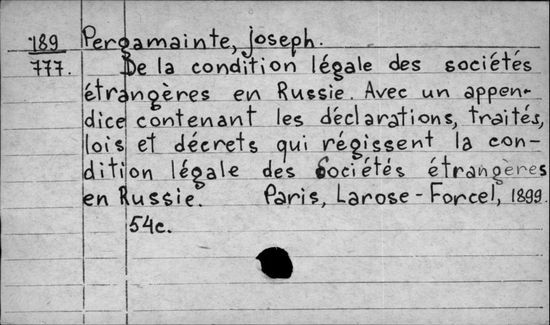 189 Pergamainte, Joseph.
777. De la condition légale des sociétés
étrangères en Russie. Avec un appen-
dice contenant les déclarations, traités,
lois et décrets qui régissent la con-
dition légale des Sociétés étrangères
en Russie. Paris, Larose-Forcel, 1899.
54c.